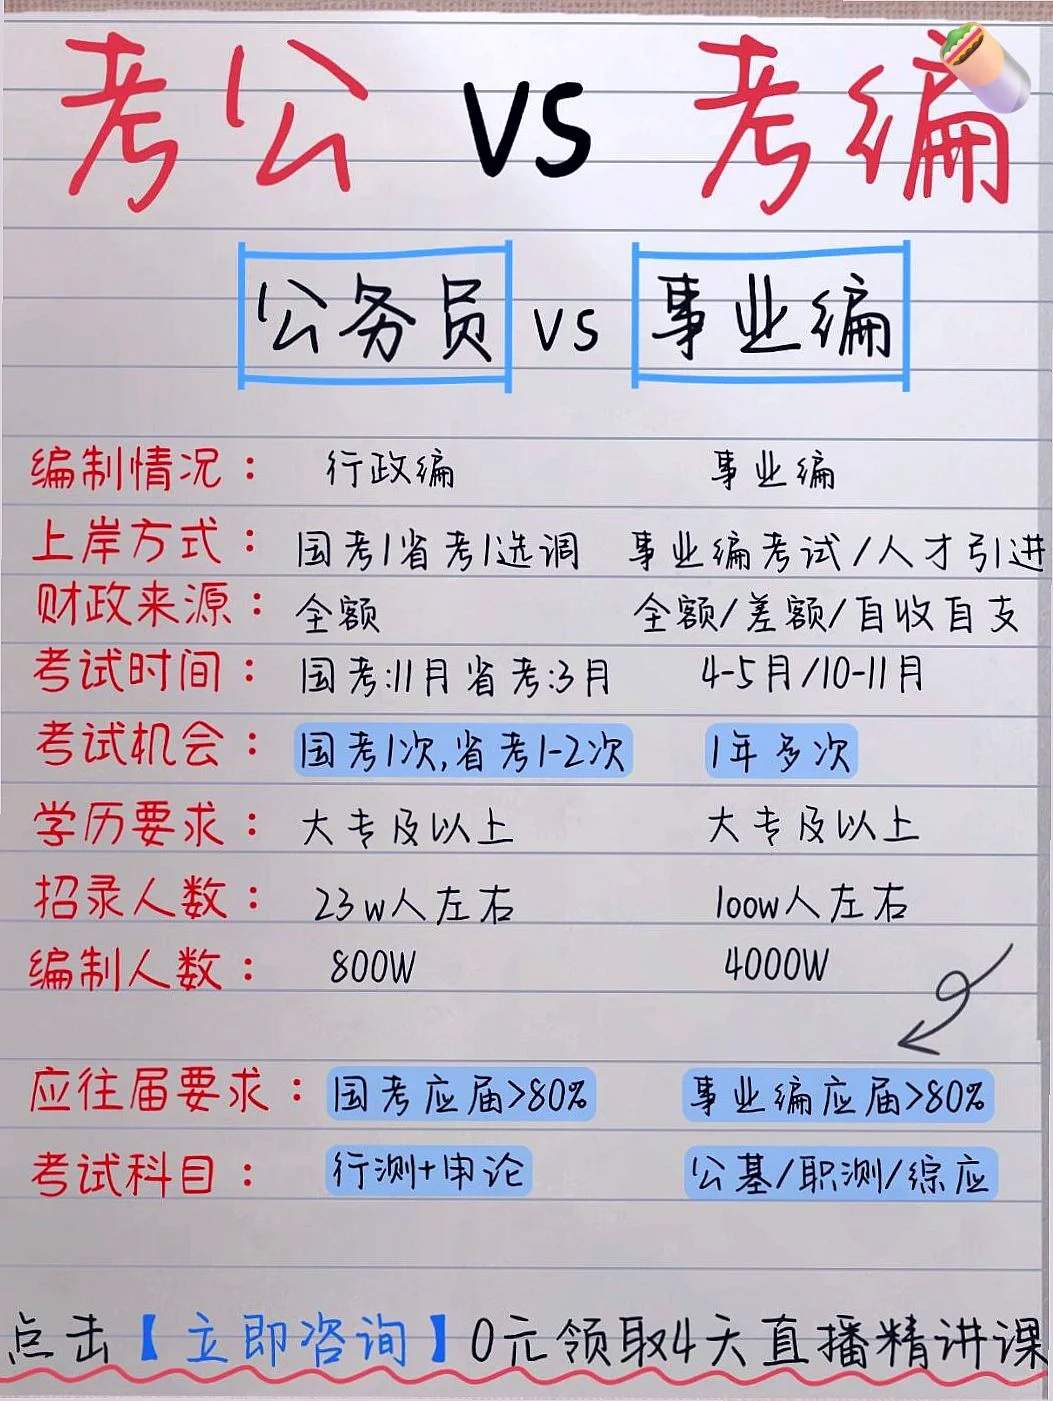 考公 VS 考编
公务员 VS 事业编
编制情况： 行政编 事业编
上岸方式： 国考/省考/选调 事业编考试/人才引进
财政来源： 全额 全额/差额/自收自支
考试时间： 国考:11月省考:3月 4-5月/10-11月
考试机会： 国考1次,省考1-2次 1年多次
学历要求： 大专及以上 大专及以上
招录人数： 23w人左右 100w人左右
编制人数： 800W 4000W
应往届要求： 国考应届>80% 事业编应届>80%
考试科目： 行测+申论 公基/职测/综应
点击【立即咨询】0元领取4天直播精讲课